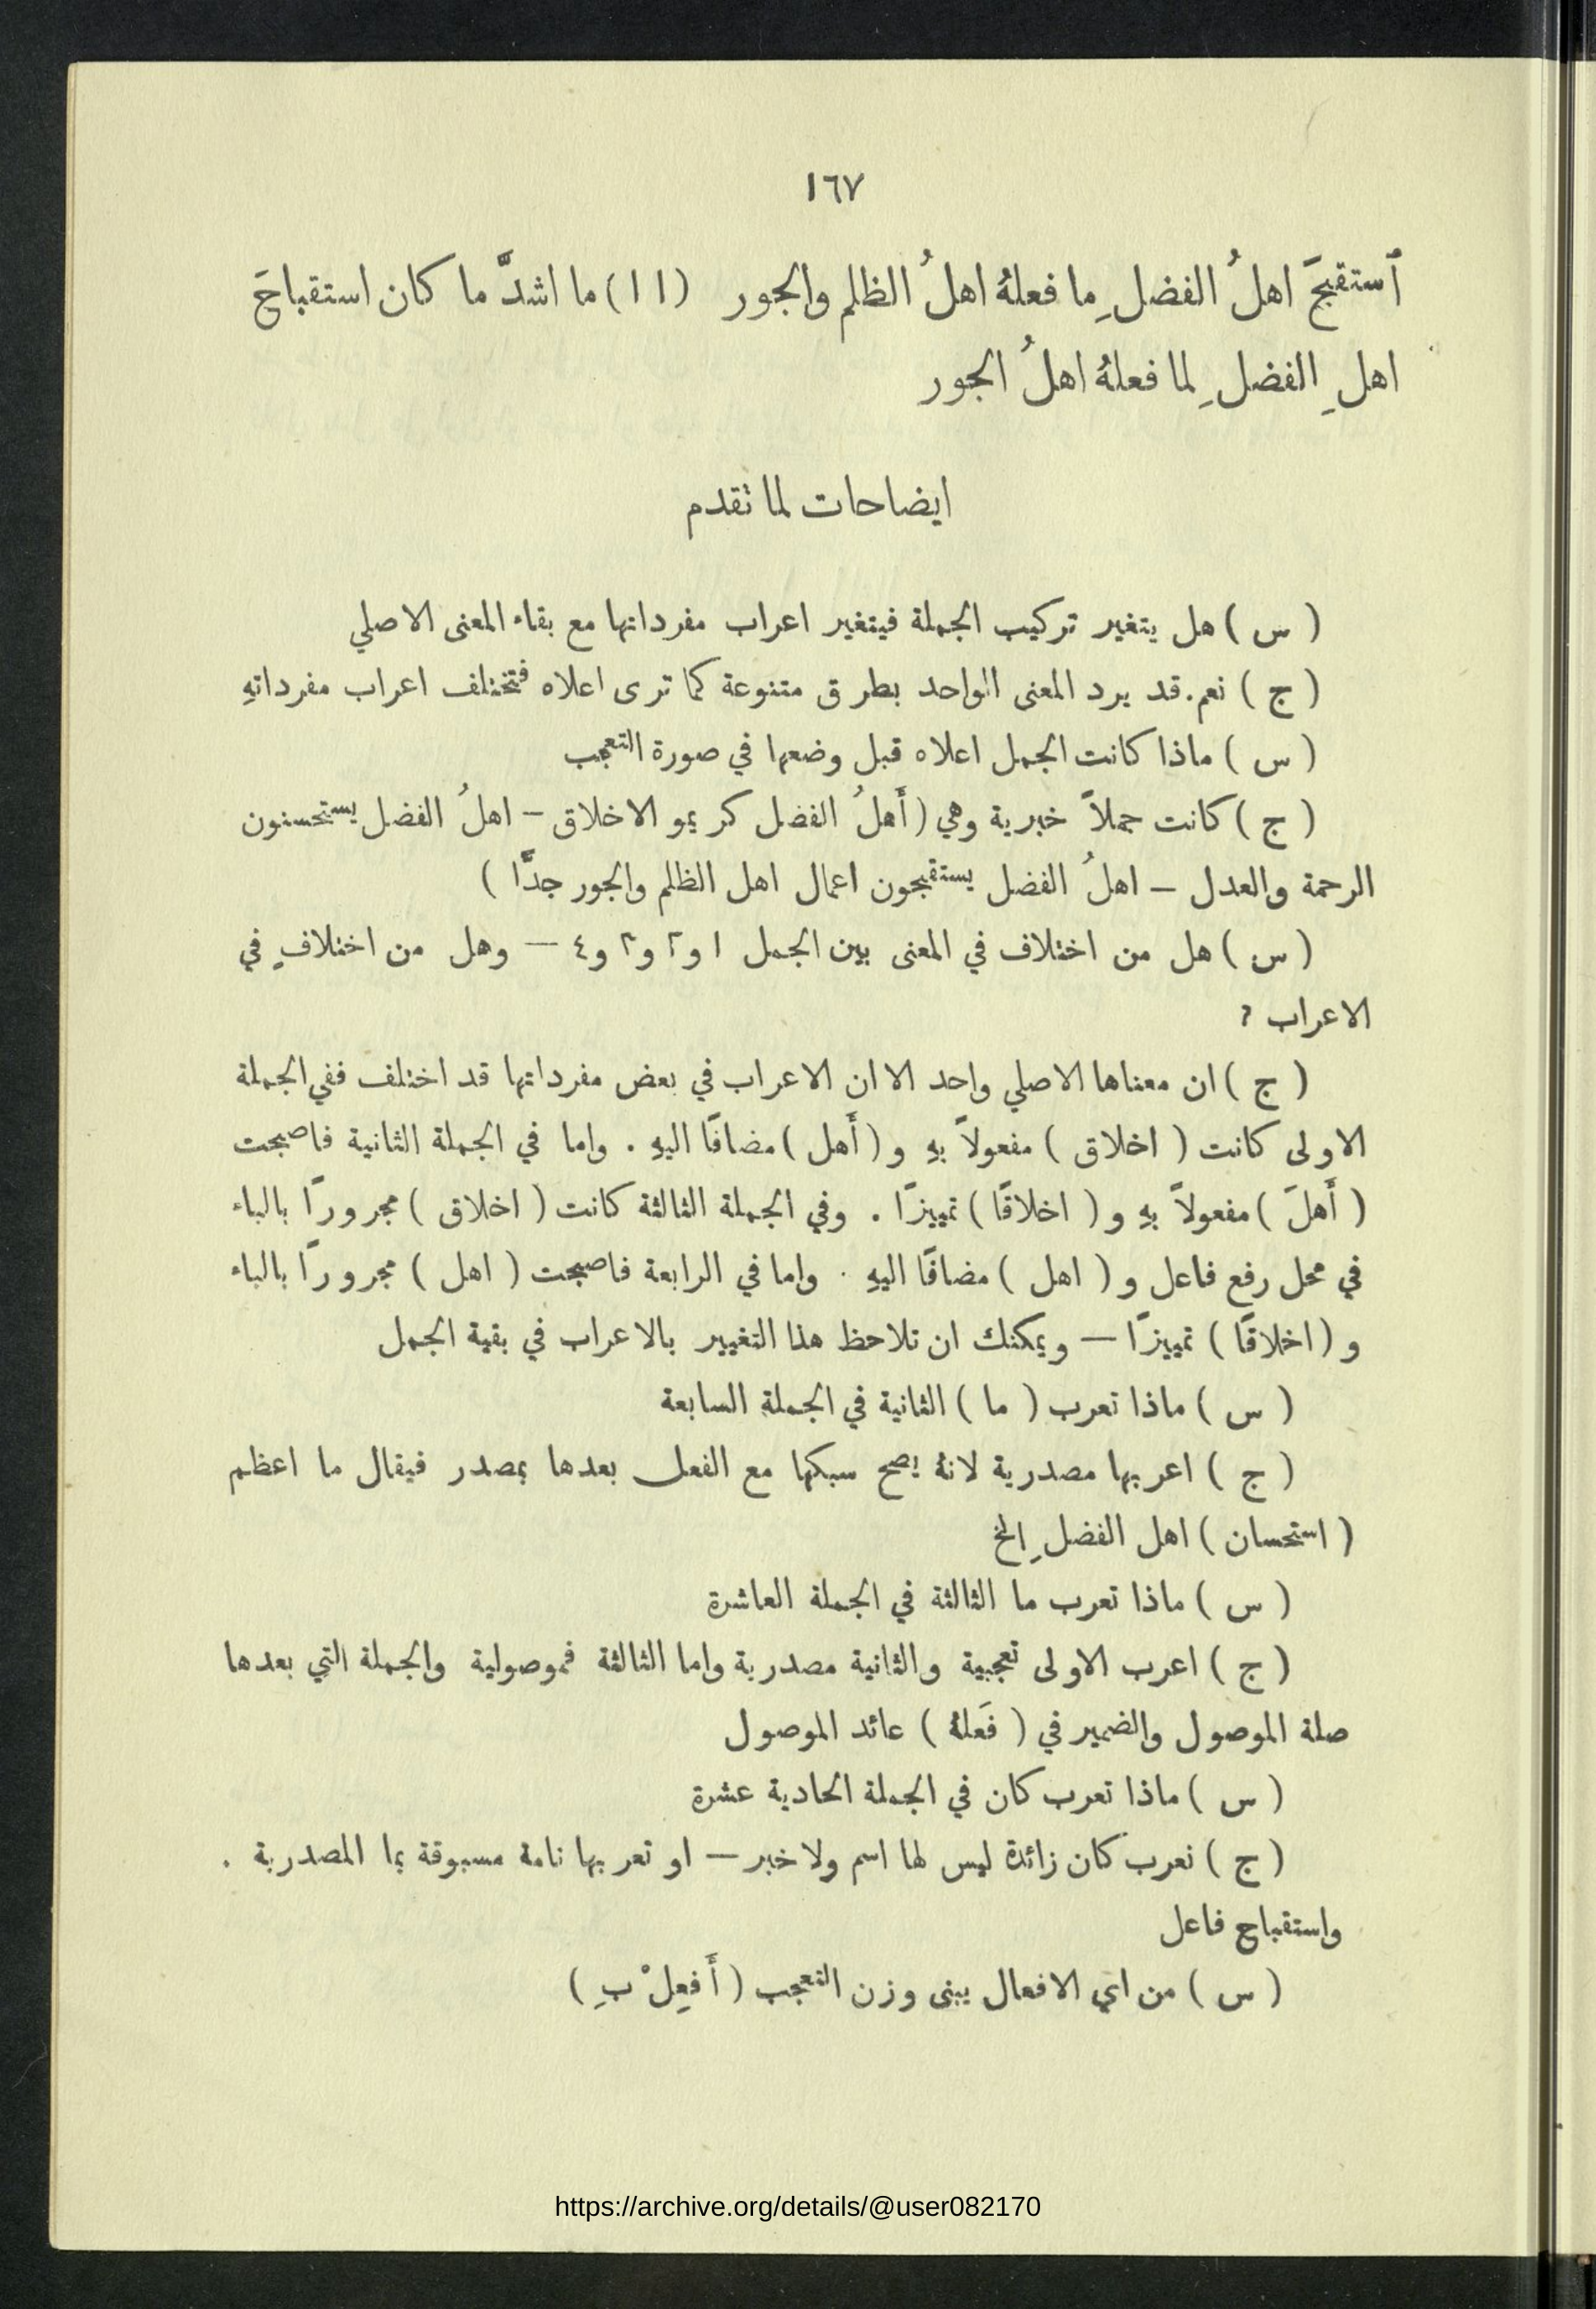 ١٦٧
ٱستقبحَ اهلُ الفضلِ ما فعلهُ اهلُ الظلم والجور (١١) ما اشدَّ ما كان استقباحَ
اهلِ الفضلِ لما فعلهُ اهلُ الجور
ايضاحات لما تقدم
( س ) هل يتغير تركيب الجملة فيتغير اعراب مفرداتها مع بقاء المعنى الاصلي
( ج ) نعم. قد يرد المعنى الواحد بطرق متنوعة كما ترى اعلاه فتختلف اعراب مفرداتهِ
( س ) ماذا كانت الجمل اعلاه قبل وضعها في صورة التعجب
( ج ) كانت جملاً خبرية وهي ( أَهلُ الفضل كريمو الاخلاق – اهلُ الفضل يستحسنون
الرحمة والعدل – اهلُ الفضل يستقبحون اعمال اهل الظلم والجور جدًّا )
( س ) هل من اختلاف في المعنى بين الجمل ١ و٢ و٣ و٤ — وهل من اختلافٍ في
الاعراب ؟
( ج ) ان معناها الاصلي واحد الا ان الاعراب في بعض مفرداتها قد اختلف ففي الجملة
الاولى كانت ( اخلاق ) مفعولاً بهِ و ( أَهل ) مضافًا اليهِ . واما في الجملة الثانية فاصبحت
( أَهلَ ) مفعولاً بهِ و ( اخلاقًا ) تمييزًا . وفي الجملة الثالثة كانت ( اخلاق ) مجرورًا بالباء
في محل رفع فاعل و ( اهل ) مضافًا اليهِ . واما في الرابعة فاصبحت ( اهل ) مجرورًا بالباء
و ( اخلاقًا ) تمييزًا — ويمكنك ان تلاحظ هذا التغيير بالاعراب في بقية الجمل
( س ) ماذا تعرب ( ما ) الثانية في الجملة السابعة
( ج ) اعربها مصدرية لانهُ يصح سبكها مع الفعل بعدها بمصدر فيقال ما اعظم
( استحسان ) اهل الفضلِ الخ
( س ) ماذا تعرب ما الثالثة في الجملة العاشرة
( ج ) اعرب الاولى تعجبية والثانية مصدرية واما الثالثة فموصولية والجملة التي بعدها
صلة الموصول والضمير في ( فَعلهُ ) عائد الموصول
( س ) ماذا تعرب كان في الجملة الحادية عشرة
( ج ) نعرب كان زائدة ليس لها اسم ولا خبر — او تعربها تامة مسبوقة بما المصدرية .
واستقباح فاعل
( س ) من اي الافعال يبنى وزن التعجب ( أَفعِلْ بِ )
https://archive.org/details/@user082170